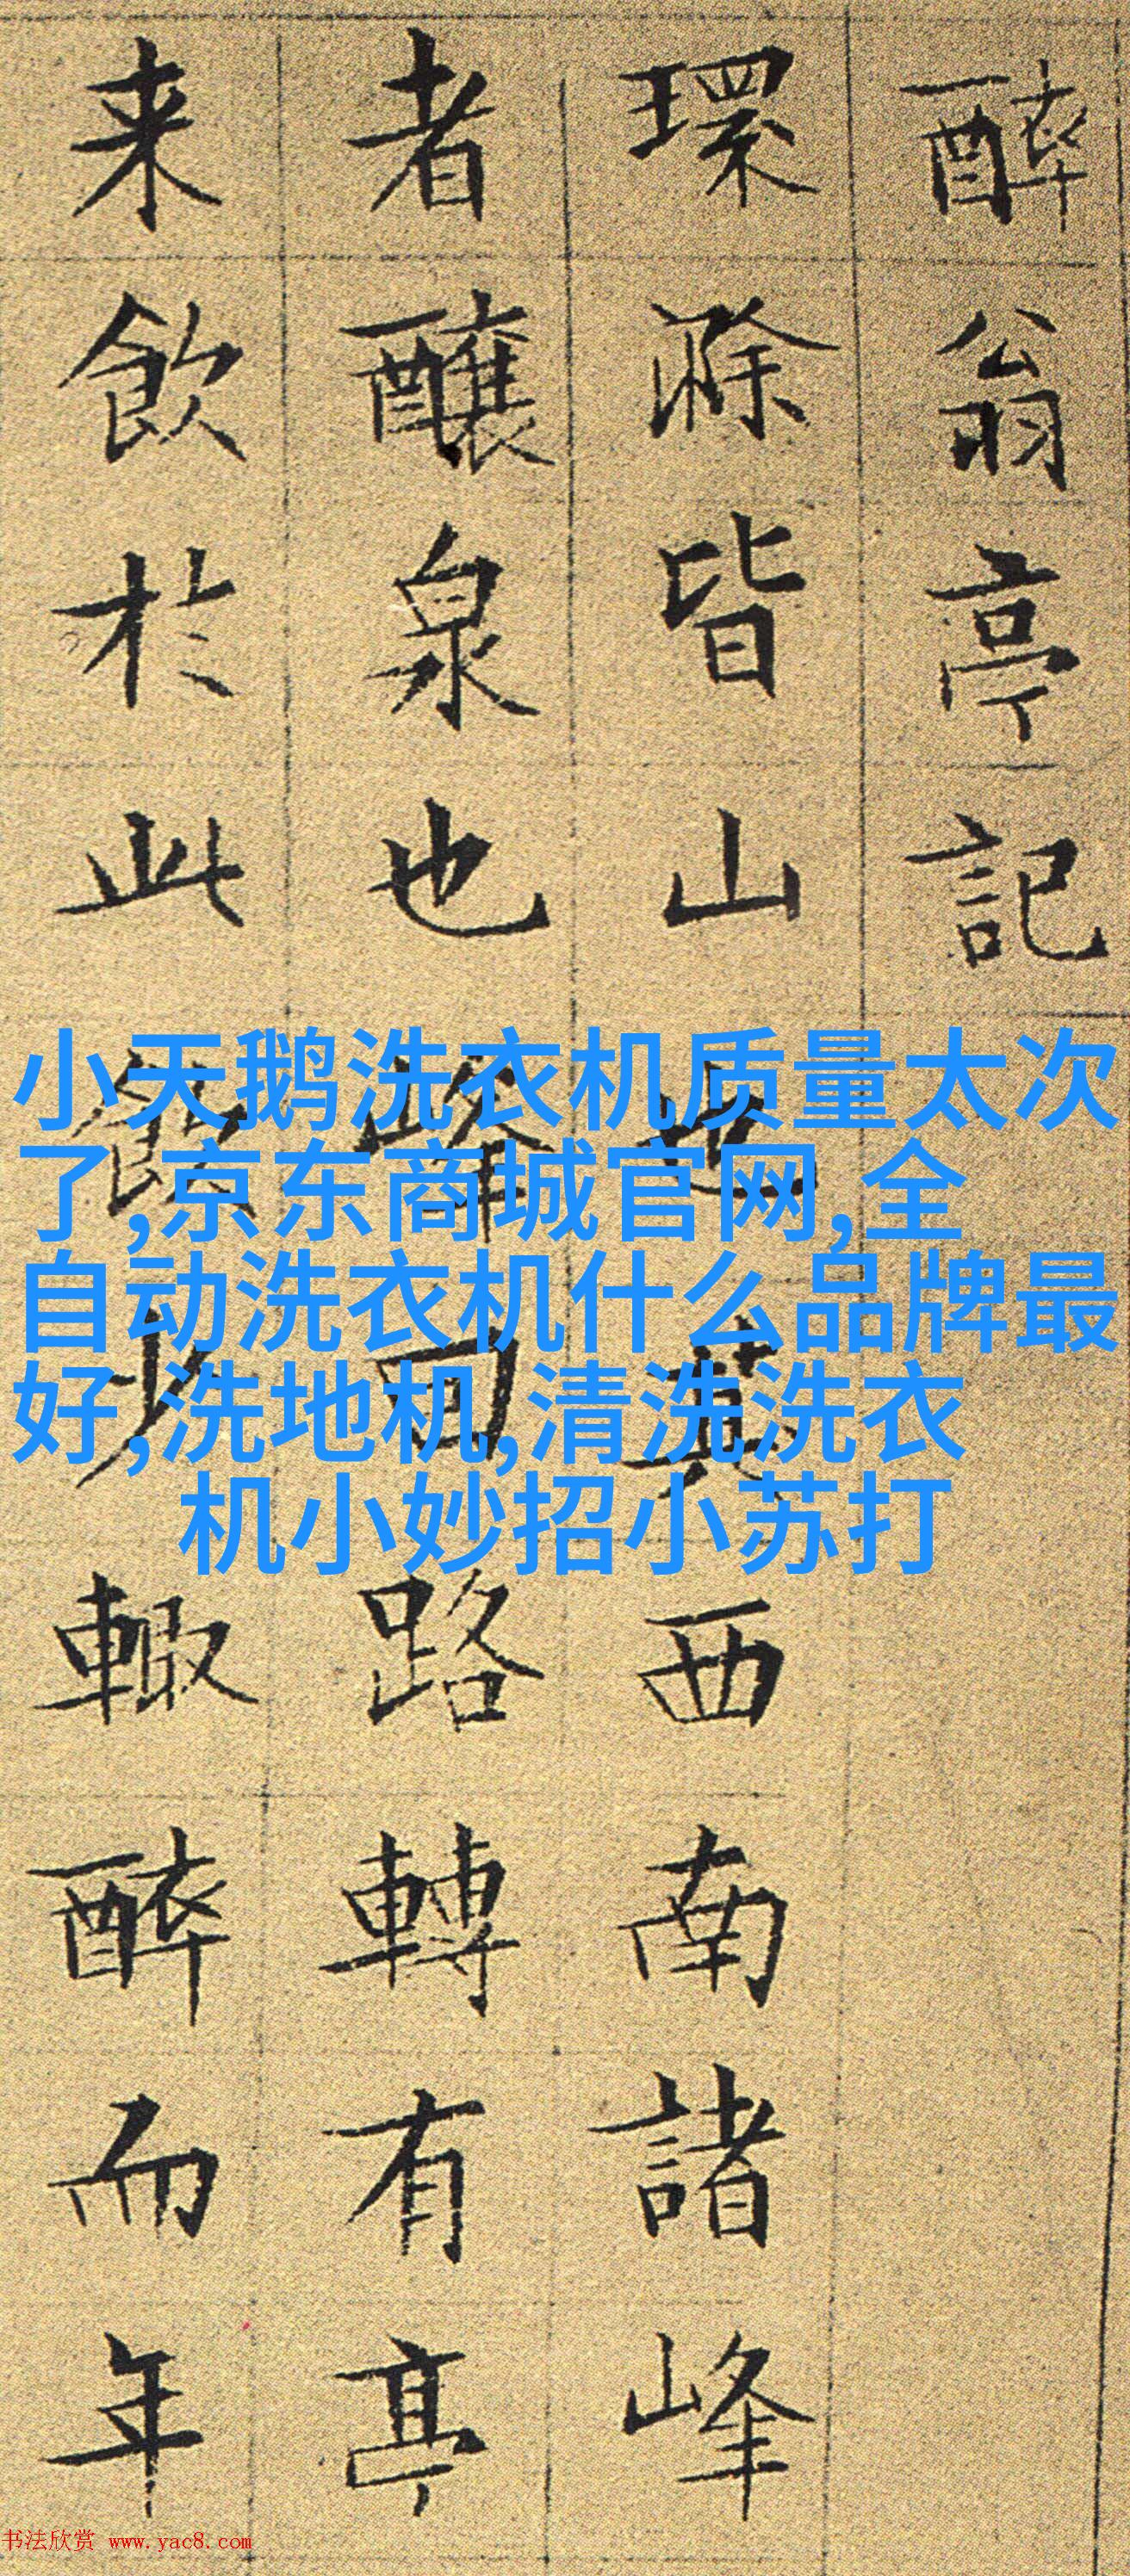 醉翁亭記
環滁皆山也其西南諸峰
者釀泉也峯回路轉有亭
来飲於此飲少輒醉而年
小天鹅洗衣机质量太次
了,京东商城官网,全
自动洗衣机什么品牌最
好,洗地机,清洗洗衣
机小妙招小苏打
书法欣赏 www.yac8.com